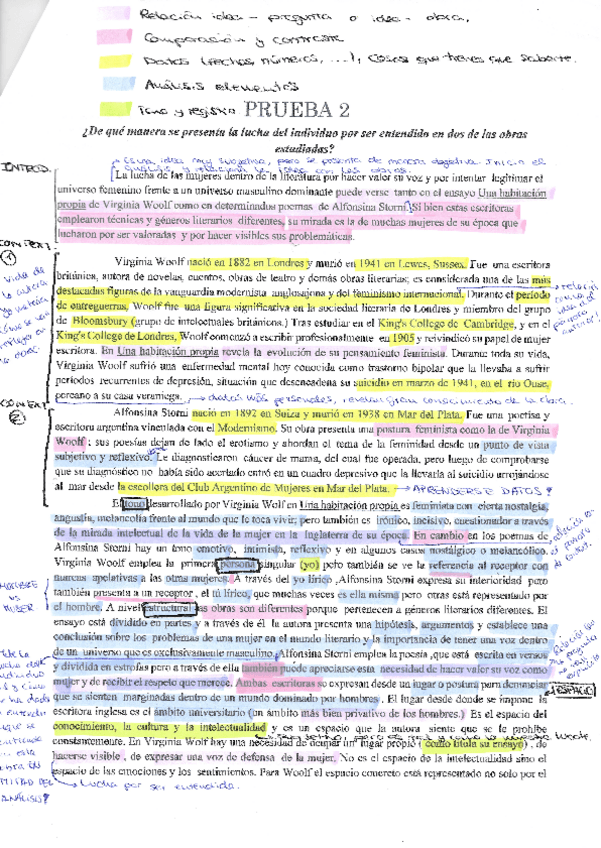 Relación idea - pregunta o idea - obra.
Comparación y contraste
Datos (fechas, números, ...), cosas que tienes que saberte.
Análisis elementos
Tono y registro PRUEBA 2
¿De qué manera se presenta la lucha del individuo por ser entendido en dos de las obras
estudiadas?
INTROD.
La lucha de las mujeres dentro de la literatura por hacer valer su voz y por intentar legitimar el
universo femenino frente a un universo masculino dominante puede verse tanto en el ensayo Una habitación
propia de Virginia Woolf como en determinados poemas de Alfonsina Storni. Si bien estas escritoras
emplearon técnicas y géneros literarios diferentes, su mirada es la de muchas mujeres de su época que
lucharon por ser valoradas y por hacer visibles sus problemáticas.
CONTEXT.
1
Virginia Woolf nació en 1882 en Londres y murió en 1941 en Lewes, Sussex. Fue una escritora
británica, autora de novelas, cuentos, obras de teatro y demás obras literarias; es considerada una de las más
destacadas figuras de la vanguardia modernista anglosajona y del feminismo internacional. Durante el período
de entreguerras, Woolf fue una figura significativa en la sociedad literaria de Londres y miembro del grupo
de Bloomsbury (grupo de intelectuales británicos.) Tras estudiar en el King's College de Cambridge, y en el
King's College de Londres, Woolf comenzó a escribir profesionalmente en 1905 y reivindicó su papel de mujer
escritora. En Una habitación propia revela la evolución de su pensamiento feminista. Durante toda su vida,
Virginia Woolf sufrió una enfermedad mental hoy conocida como trastorno bipolar que la llevaba a sufrir
períodos recurrentes de depresión, situación que desencadena su suicidio en marzo de 1941, en el río Ouse,
cercano a su casa veraniega. datos más personales, revelan gran conocimiento de la obra.
CONTEXT.
2
Alfonsina Storni nació en 1892 en Suiza y murió en 1938 en Mar del Plata. Fue una poetisa y
escritora argentina vinculada con el Modernismo. Su obra presenta una postura feminista como la de Virginia
Woolf ; sus poesías dejan de lado el erotismo y abordan el tema de la feminidad desde un punto de vista
subjetivo y reflexivo. Le diagnosticaron cáncer de mama, del cual fue operada, pero luego de comprobarse
que su diagnóstico no había sido acertado entró en un cuadro depresivo que la llevaría al suicidio arrojándose
al mar desde la escollera del Club Argentino de Mujeres en Mar del Plata. APRENDERSE DATOS?
El tono desarrollado por Virginia Wolf en Una habitación propia es feminista con cierta nostalgia,
angustia, melancolía frente al mundo que le toca vivir, pero también es irónico, incisivo, cuestionador a través
de la mirada intelectual de la vida de la mujer en la Inglaterra de su época. En cambio en los poemas de
Alfonsina Storni hay un tono emotivo, intimista, reflexivo y en algunos casos nostálgico o melancólico.
Virginia Woolf emplea la primera persona singular (yo) pero también se ve la referencia al receptor con
marcas apelativas a las otras mujeres. A través del yo lírico ,Alfonsina Storni expresa su interioridad pero
también presenta a un receptor , el tú lírico, que muchas veces es ella misma pero otras está representado por
HOMBRE
VS
MUJER
el hombre. A nivel estructural las obras son diferentes porque pertenecen a géneros literarios diferentes. El
ensayo está dividido en partes y a través de él la autora presenta una hipótesis, argumentos y establece una
conclusión sobre los problemas de una mujer en el mundo literario y la importancia de tener una voz dentro
de un universo que es exclusivamente masculino. Alfonsina Storni emplea la poesía ,que está escrita en versos
y dividida en estrofas pero a través de ella también puede apreciarse esta necesidad de hacer valer su voz como
mujer y de recibir el respeto que merece. Ambas escritoras se expresan desde un lugar o postura para denunciar
que se sienten marginadas dentro de un mundo dominado por hombres . El lugar desde donde se impone la
ESPACIO
escritora inglesa es el ámbito universitario (un ámbito más bien privativo de los hombres.) Es el espacio del
conocimiento, la cultura y la intelectualidad y es un espacio que la autora siente que se le prohíbe
constantemente. En Virginia Woolf hay una necesidad de ocupar un lugar propio ( como titula su ensayo) , de
hacerse visible , de expresar una voz de defensa de la mujer. No es el espacio de la intelectualidad sino el
espacio de las emociones y los sentimientos. Para Woolf el espacio concreto está representado no solo por el
Lucha por ser entendida.